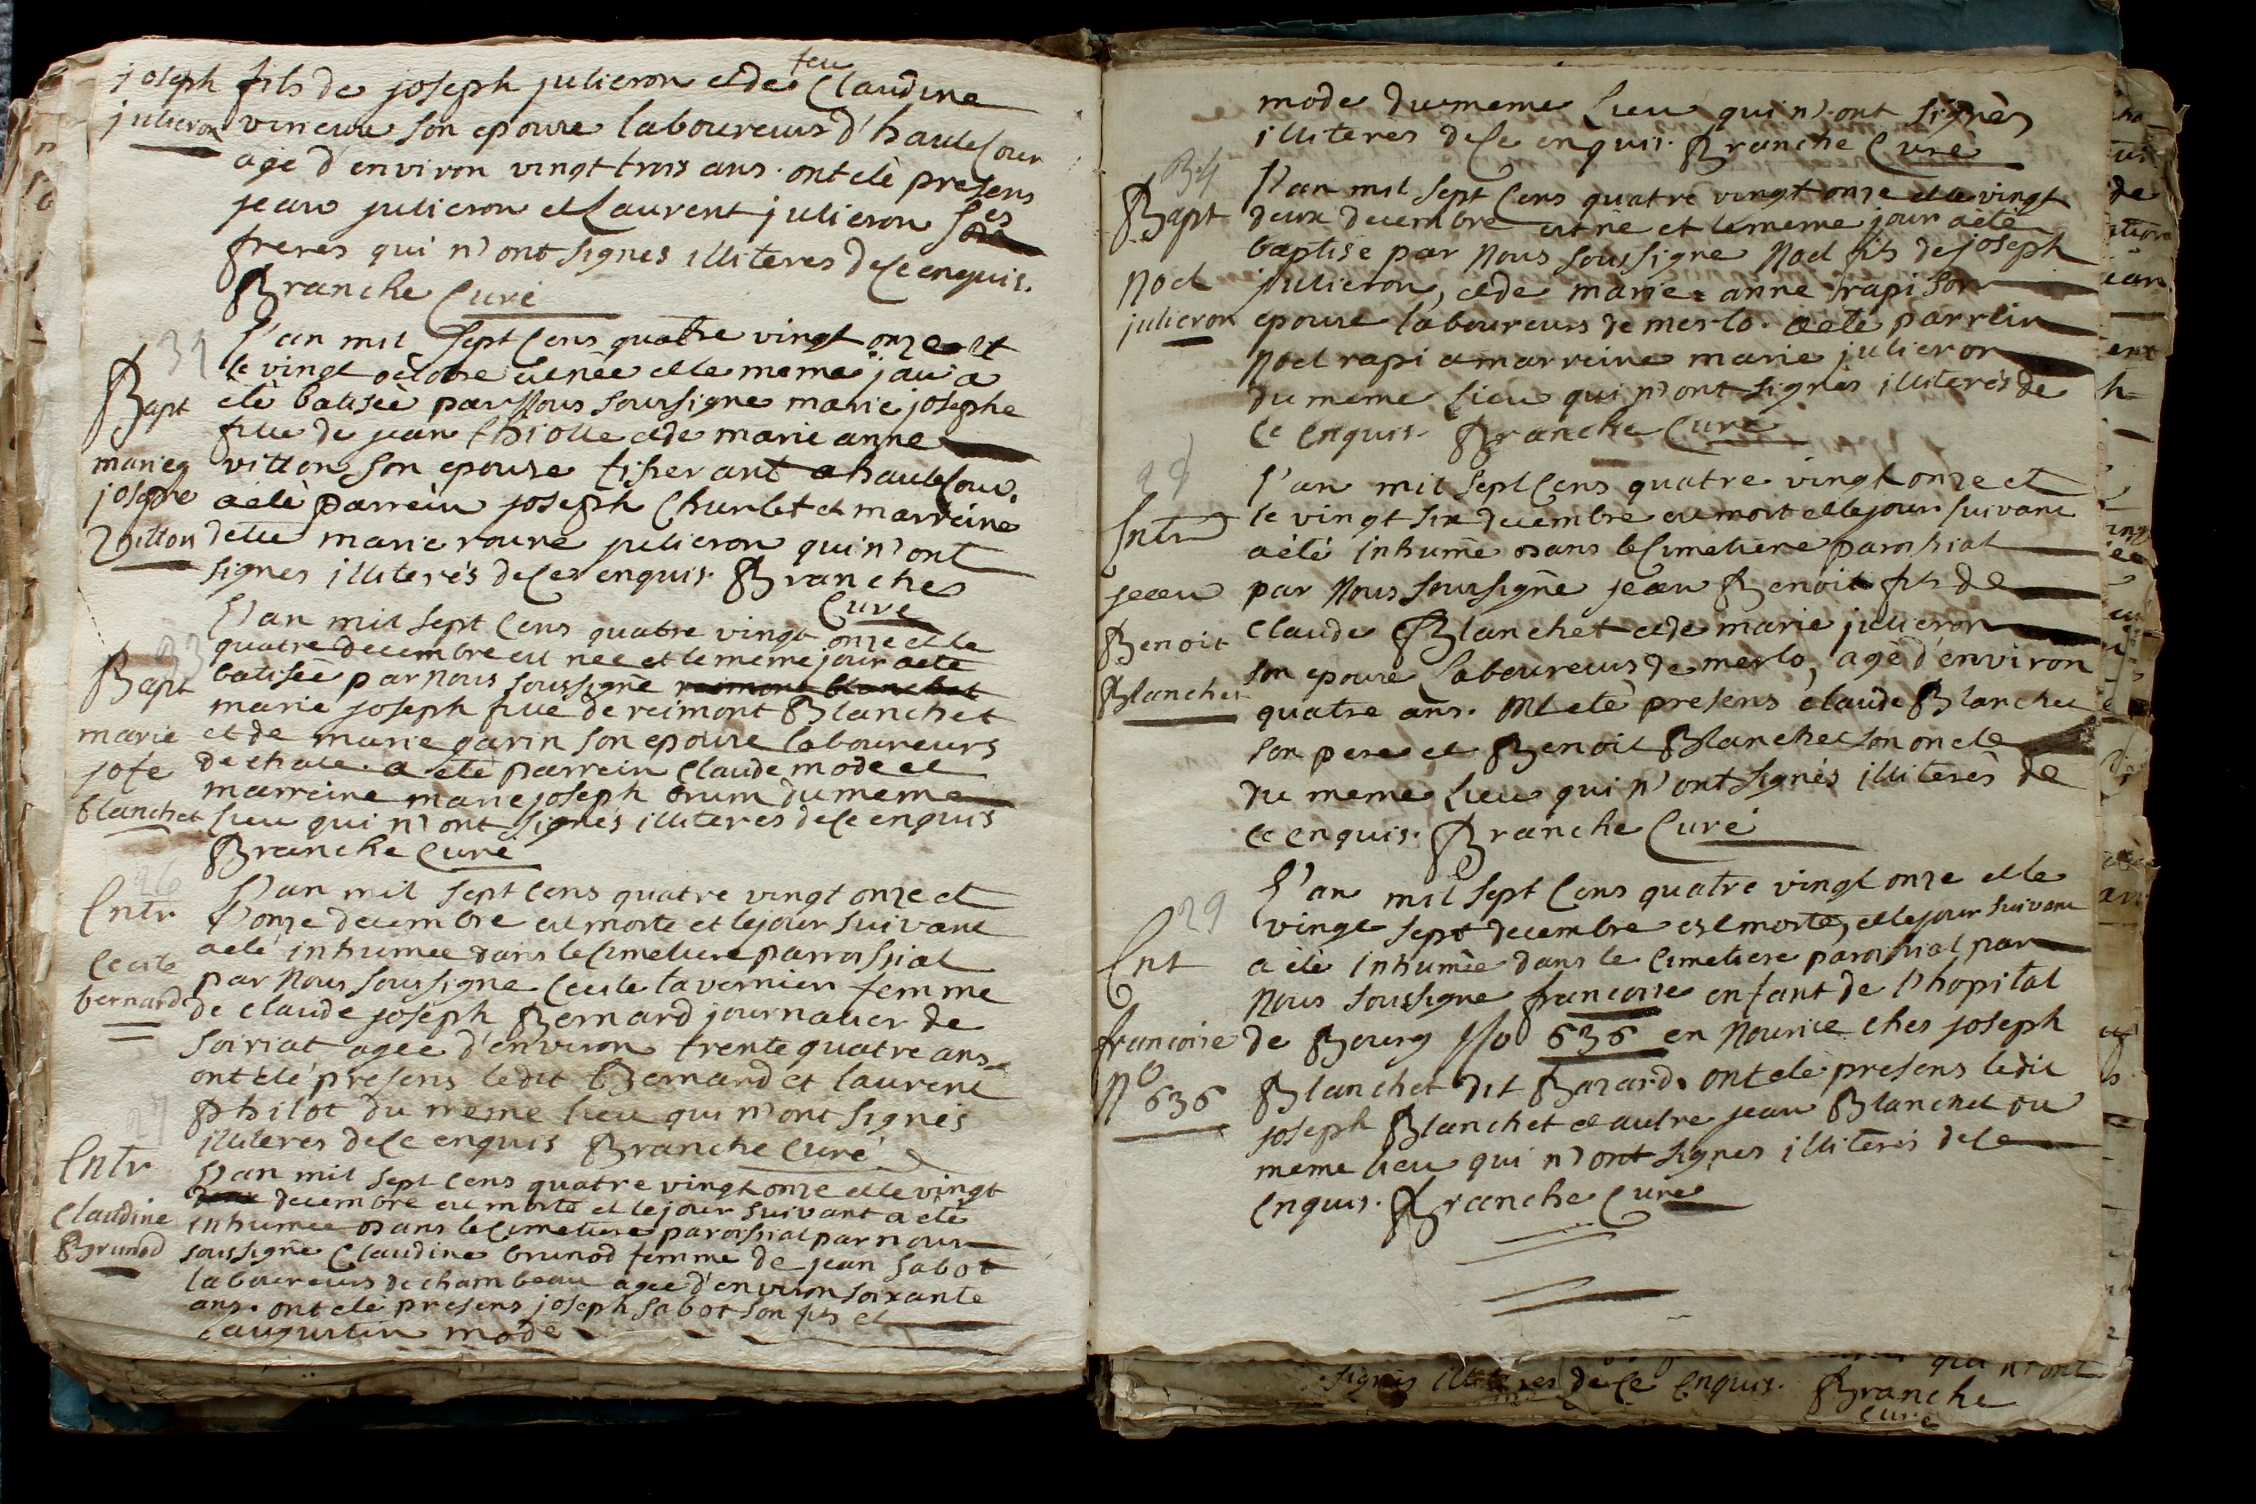 joseph fils de joseph julieron et de feu Claudine
julieron vincent son epouse laboureurs d'hautecour
agé d'environ vingt trois ans. ont été presens
jean julieron et Laurent julieron ses
freres qui n'ont signes illiteres de ce enquis.
Branche Curé
31
L'an mil sept cens quatre vingt onze et
le vingt octobre est née et le meme jour a
Bapt été batisée par Nous soussigné marie josephe
fille de jean thiolle et de marie anne
marie vitton son epouse tisserant a hautecour.
josephe a été parrein joseph Churlet et marreine
Vitton dette marie roure julieron qui n'ont
signes illiterés de ces enquis. Branche
Curé
L'an mil sept cens quatre vingt onze et le
33 quatre decembre est née et le meme jour a été
Bapt batisée par nous soussigné reimont blanchet
marie joseph fille de reimont Blanchet
marie et de marie garin son epouse laboureurs
jose de chate. a été parrein Claude mode et
marreine marie joseph brun du meme
blanchet lieu qui n'ont signés illiteres de ce enquis
Branche Curé
26
L'an mil sept cens quatre vingt onze et
Entr l'onze decembre est morte et le jour suivant
a été inhumée dans le cimetiere parroissial
Cecile par Nous soussigne Cecile tavernier femme
bernard de claude joseph Bernard journalier de
soiriat agee d'environ trente quatre ans
ont été presens ledit Bernard et laurent
philot du meme lieu qui n'ont signés
27
illiteres de ce enquis Branche Curé
Entr
L'an mil sept cens quatre vingt onze et le vingt
deux decembre est morte et le jour suivant a été
Claudine inhumée dans le cimetiere paroissial par nous
Brunod soussigné Claudine brunod femme de jean sabot
laboureurs de chambeau agee d'environ soixante
ans. ont été presens joseph sabot son fils et
augustin mode
mode du meme lieu qui n'ont signés
illiteres de ce enquis. Branche Curé
34
L'an mil sept cens quatre vingt onze et le vingt
Bapt deux decembre est né et le meme jour a été
baptisé par Nous soussigne Noel fils de joseph
Noel julieron, et de marie = anne rapi son
julieron epouse laboureurs de merlo. a été parrein
Noel rapi et marreine marie julieron
du meme lieu qui n'ont signes illiterés de
ce enquis. Branche Curé
28
L'an mil sept cens quatre vingt onze et
Entr le vingt six decembre est mort et le jour suivant
a été inhumé dans le cimetiere paroissial
jean par Nous soussigné jean Benoit fils de
Benoit Claude Blanchet et de marie julieron
son epouse laboureurs de merlo, agé d'environ
Blanchet quatre ans. ont été presens claude Blanchet
son pere et Benoit Blanchet son oncle
du meme lieu qui n'ont signés illiterés de
ce enquis. Branche Curé
29
L'an mil sept cens quatre vingt onze et le
vingt sept decembre est morte, et le jour suivant
Ent a été inhumée dans le cimetiere paroissial par
Nous soussigne francoise enfant de l'hopital
francoise de Bourg No 636 en Nourice ches joseph
No 636 Blanchet dit Bazard. ont été presens ledit
joseph Blanchet et autre jean Blanchet du
meme lieu qui n'ont signes illiterés de ce
enquis. Branche Curé
qui n'ont
signés illiteres de ce enquis. Branche
Curé